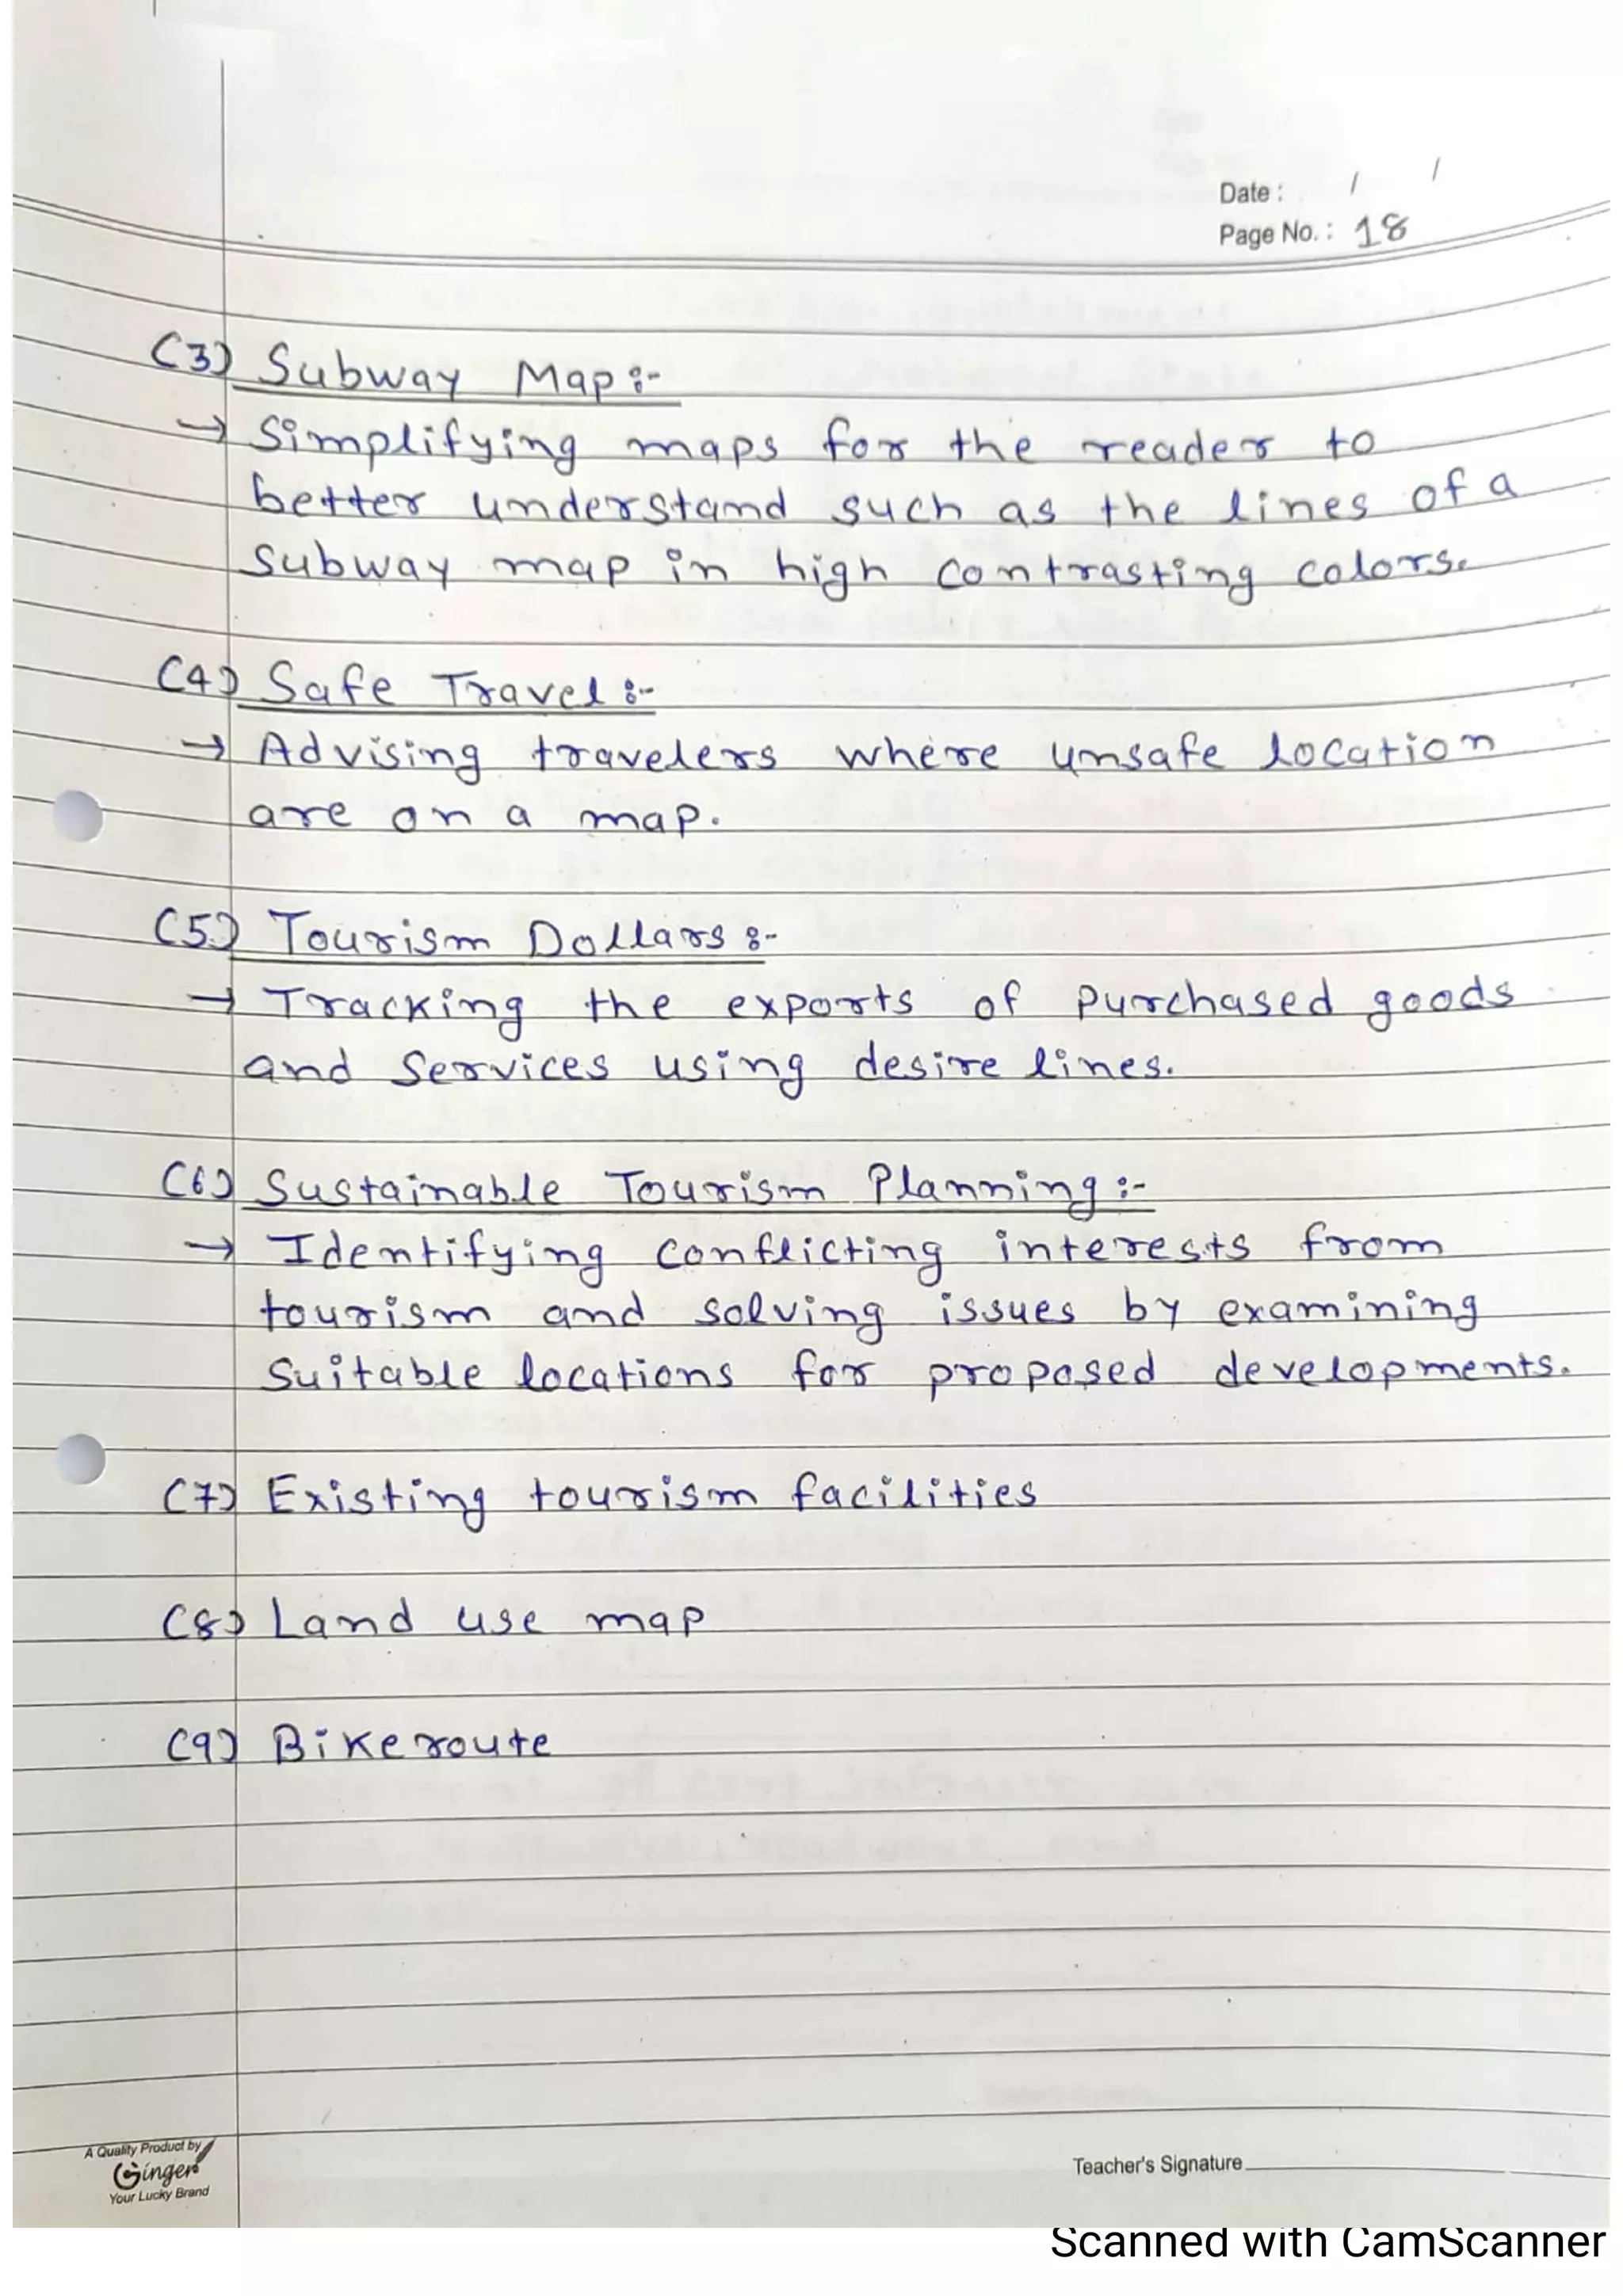 Date : / /
Page No. : 18
(3) Subway Map :-
→ Simplifying maps for the reader to
better understand such as the lines of a
subway map in high contrasting colors.
(4) Safe Travel :-
→ Advising travelers where unsafe location
are on a map.
(5) Tourism Dollars :-
→ Tracking the exports of purchased goods
and services using desire lines.
(6) Sustainable Tourism Planning :-
→ Identifying conflicting interests from
tourism and solving issues by examining
suitable locations for proposed developments.
(7) Existing tourism facilities
(8) Land use map
(9) Bike route
A Quality Product by
Ginger
Your Lucky Brand
Teacher's Signature
Scanned with CamScanner